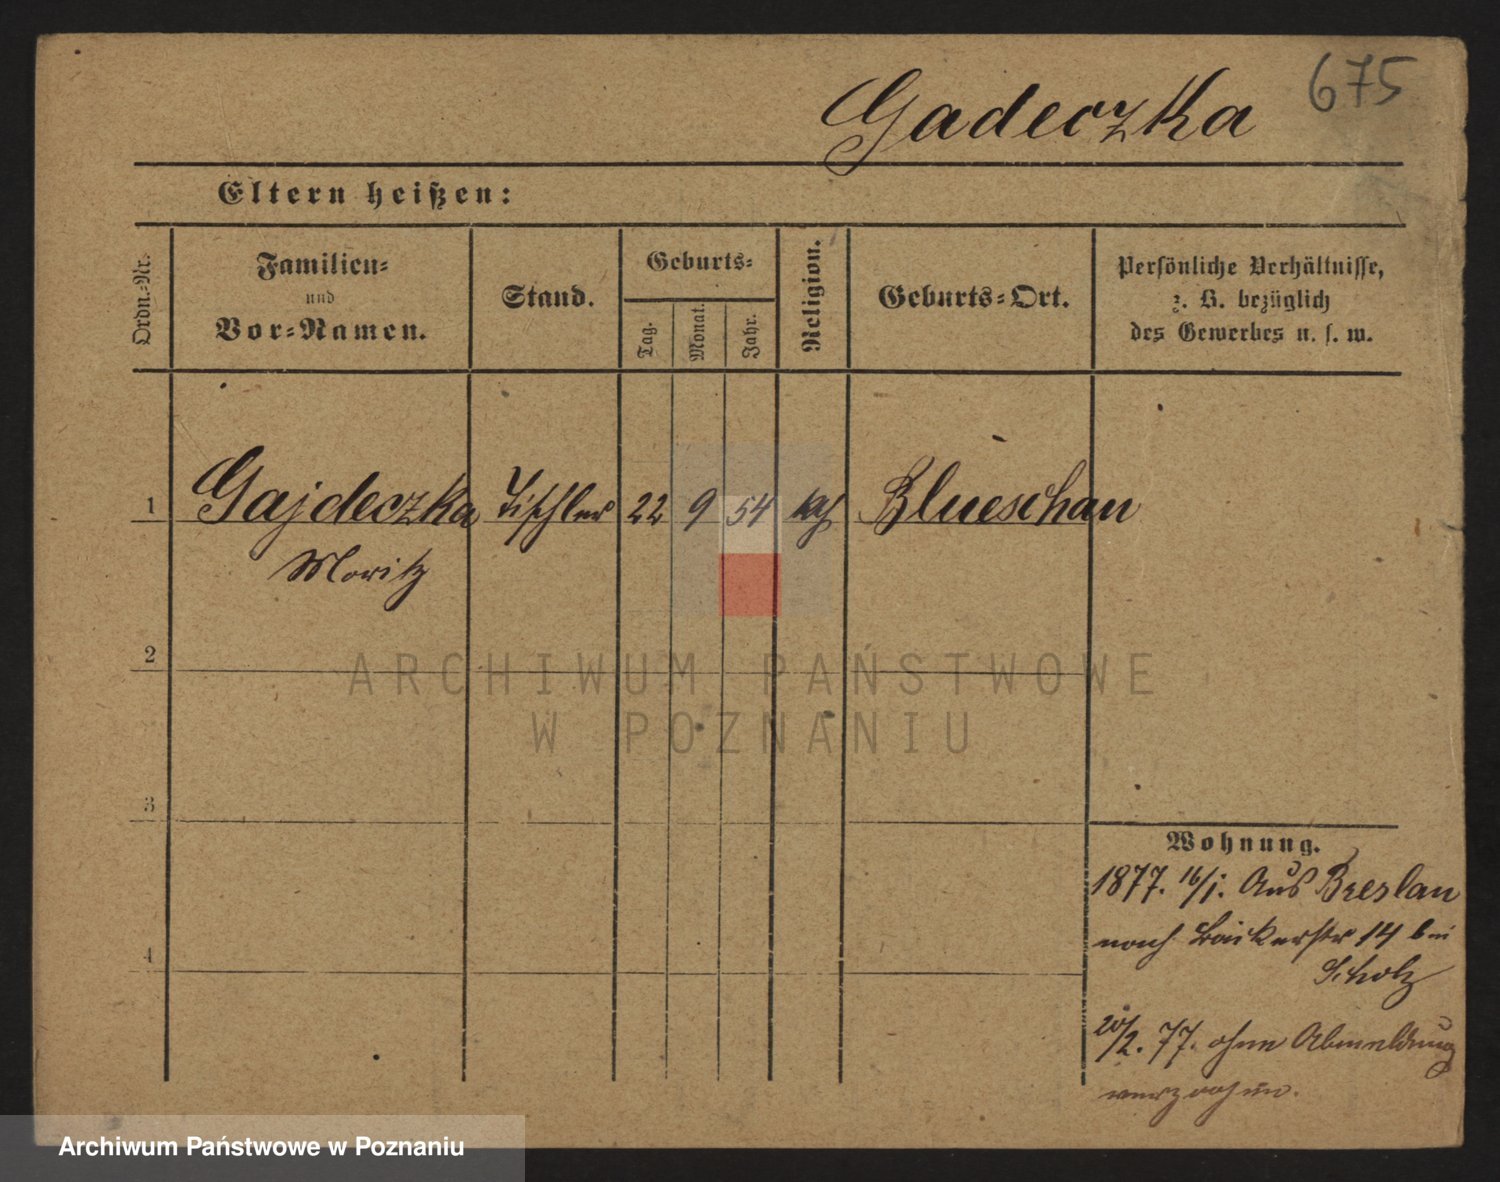 675
Gadeczka
Eltern heißen:
Ordn.-Nr.
Familien-
und
Vor-Namen.
Stand.
Geburts-
Tag.
Monat.
Jahr.
Religion.
Geburts-Ort.
Persönliche Verhältnisse,
z. B. bezüglich
des Gewerbes u. s. w.
1 Gajdeczka Tischler 22 9 54 kath Blueschau
Moritz
2
3
4
ARCHIWUM PAŃSTWOWE
W POZNANIU
Wohnung.
1877. 16/1. Aus Breslau
nach Bäckerstr 14 bei
Scholz
20/2. 77. ohne Abmeldung
verzogen.
Archiwum Państwowe w Poznaniu